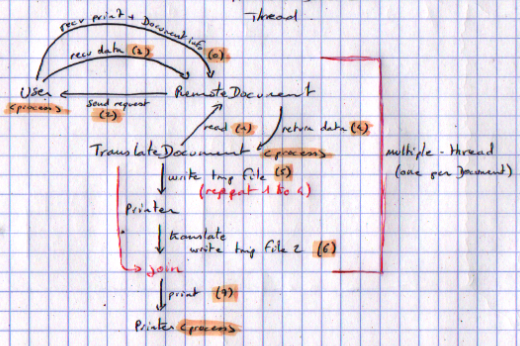 Thread
recv print + Document info (0)
recv data (3)
User
RemoteDocument
(process)
send request
(2)
read (1)
return data (4)
TranslateDocument (process)
multiple-thread
(one per Document)
write tmp file (5)
(reppat 1 to 4)
Printer
translate
write tmp file 2 (6)
join
print (7)
Printer (process)